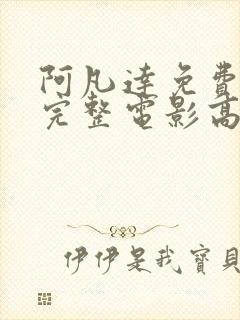 阿凡達免費
完整電影高
伊伊是我寶貝